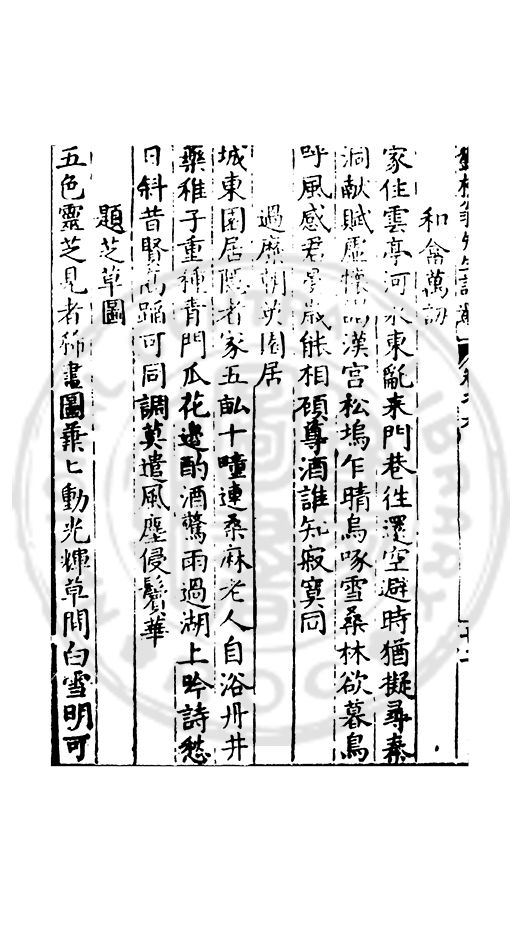 和俞萬訒
家住雲亭河水東亂来門巷徃還空避時猶擬尋秦
洞献賦虛懷謁漢宫松塢乍晴烏啄雪桑林欲暮鳥
呼風感君歲能相顧尊酒誰知寂寞同
過園居
城東園居隱者家五畝十畽連桑麻老人自浴丹井
藥稚子重種青門瓜花邊酌酒驚雨過湖上吟詩愁
日斜昔賢髙蹈可同調莫遣風塵侵鬢華
題芝草圖
五色靈芝見者稀畫圖葉上動光輝草間白雪明可